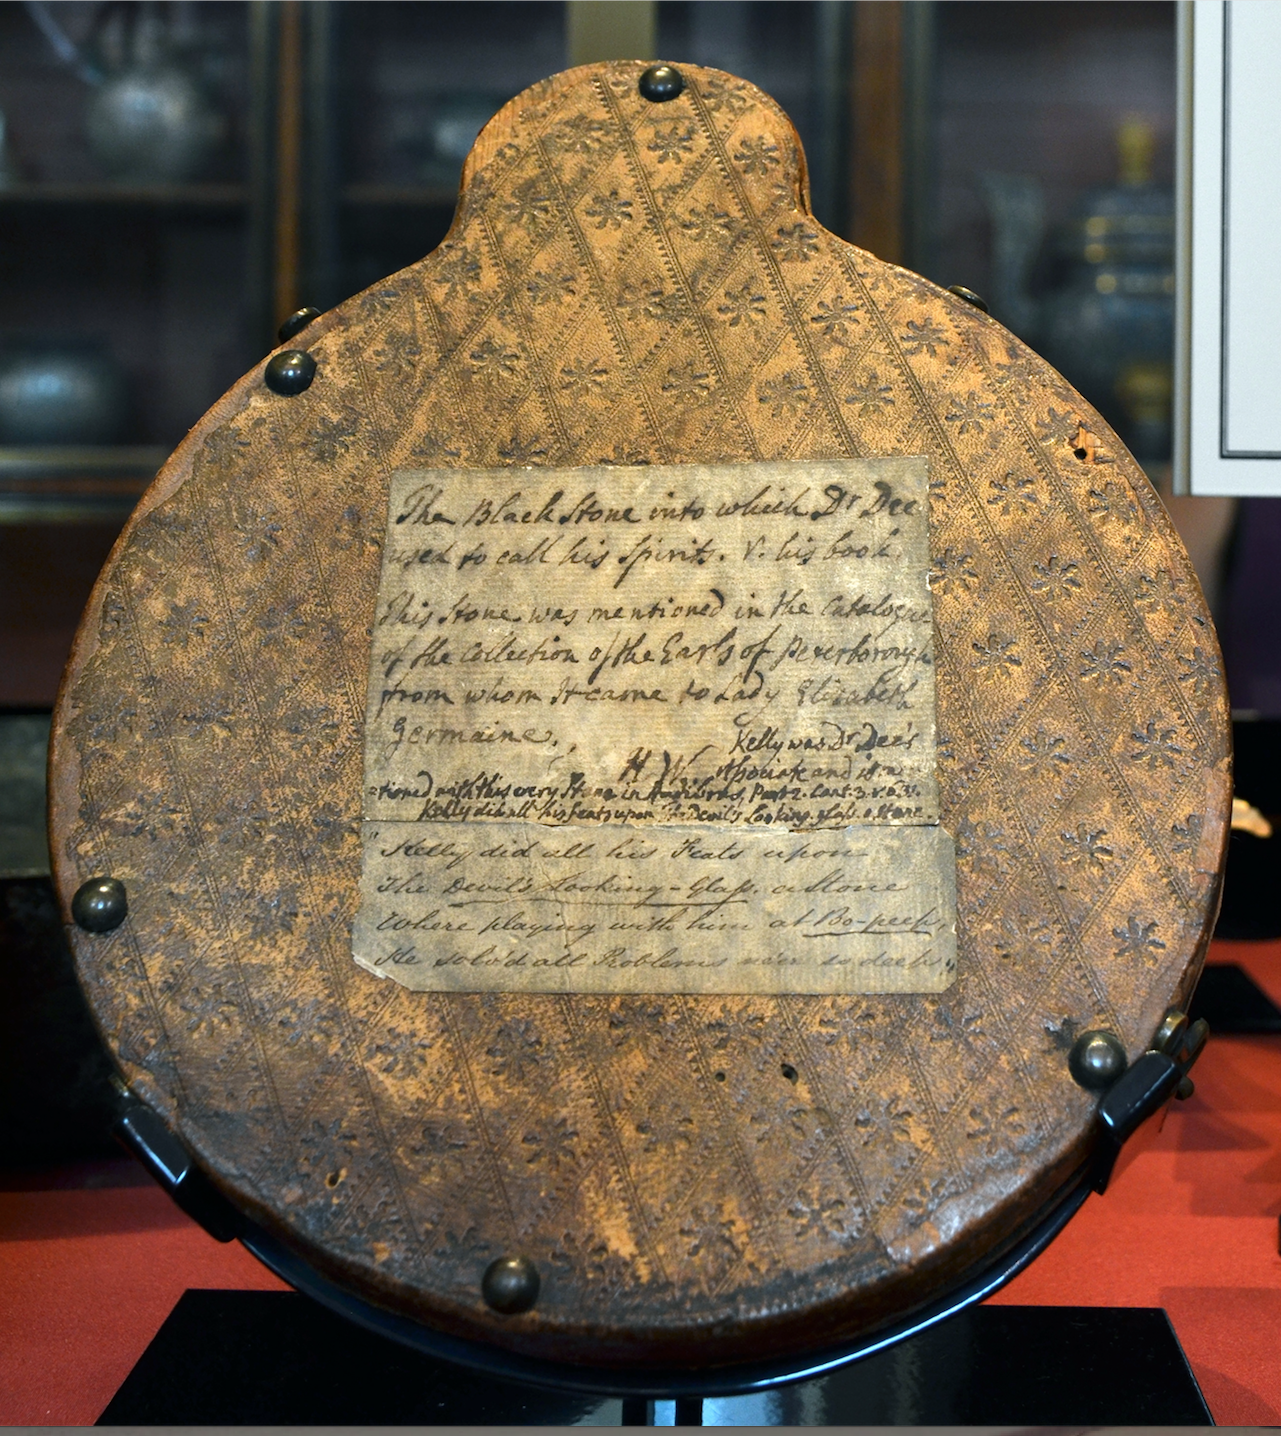 The Black Stone into which Dr Dee
used to call his Spirits. V. his book.
This Stone was mentioned in the Catalogue
of the Collection of the Earls of Peterborough
from whom it came to Lady Elizabeth
Germaine.
H W.
Kelly was Dr Dee's
Associate and is
tioned with this very Stone in Hudibras, Part 2. Cant. 3. v. 631.
Kelly did all his feats upon The Devil's Looking-glass, a Stone.
"Kelly did all his Feats upon
The Devil's Looking-Glass, a Stone
Where playing with him at Bo-peep,
He solv'd all Problems ne'er so deep."